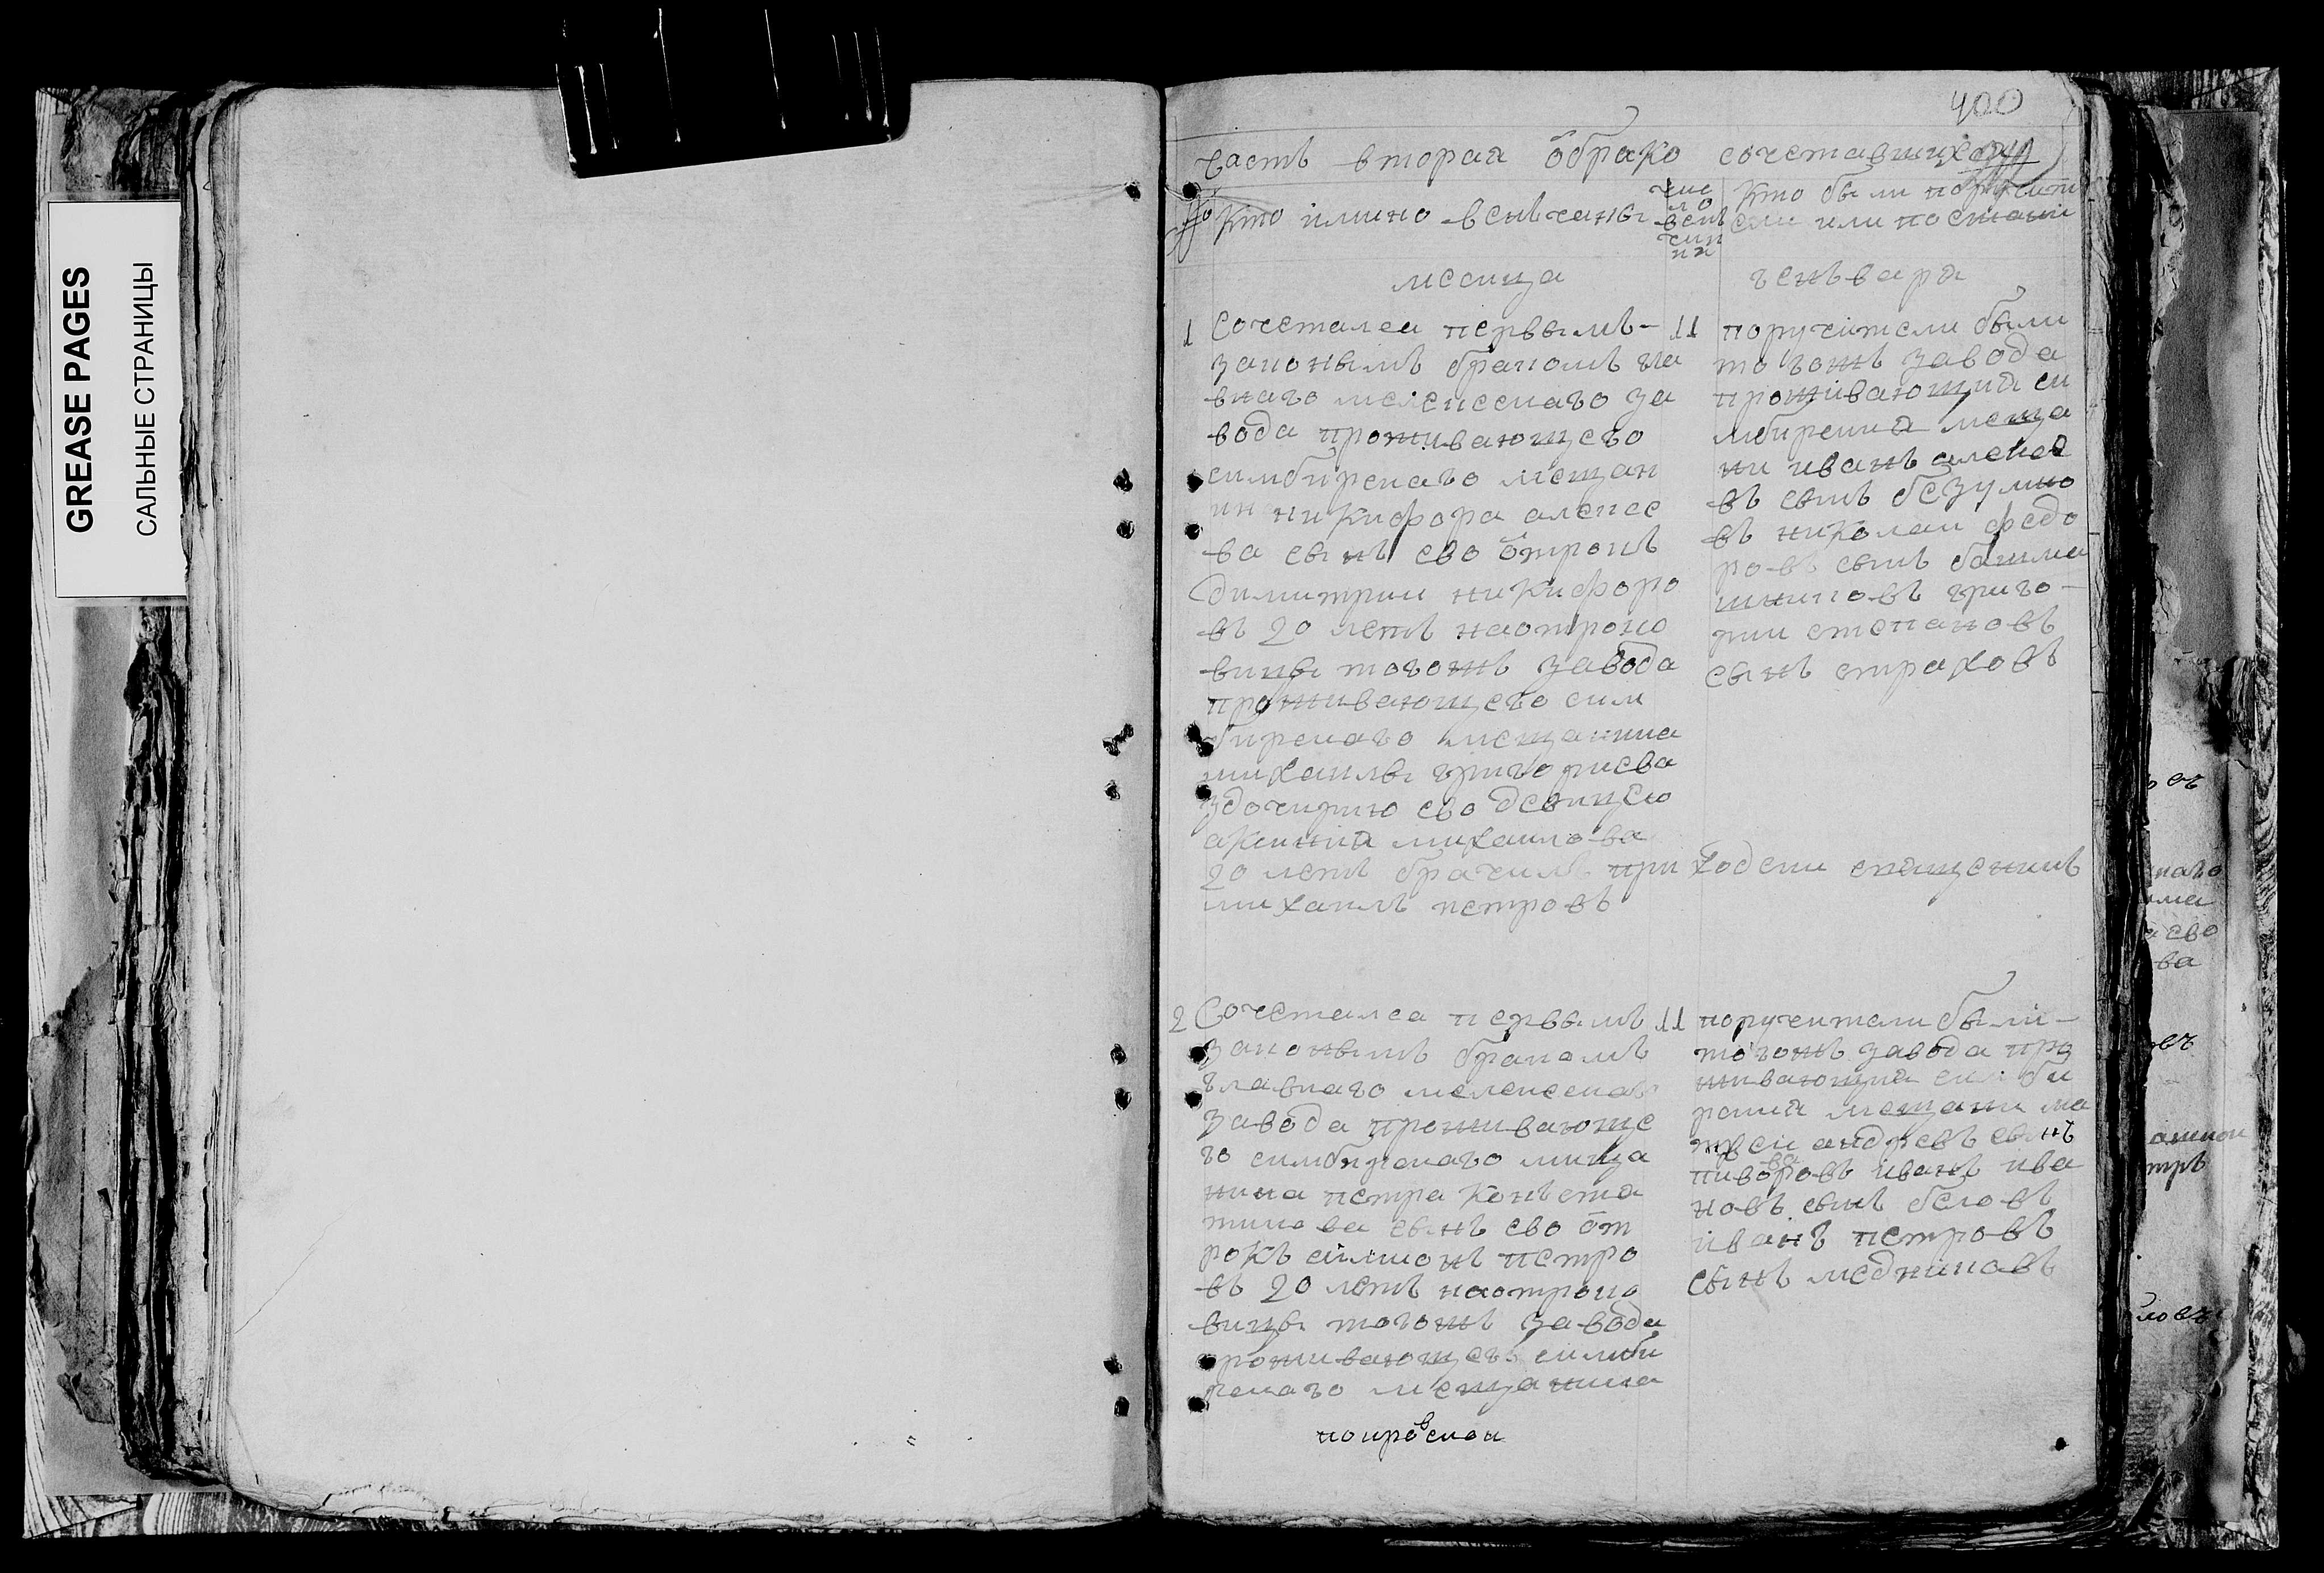 GREASE PAGES
САЛЬНЫЕ СТРАНИЦЫ
400
часть вторая обрако сочетавшихся
кто имяно венчаны
чис
ло
вен
чан
ия
кто были поручит
ели или
месяца генъваря
1 Сочетался первымъ-
законымъ бракомъ гла
внаго мелекескаго за
вода проживающего
симбирскаго мещан
ин никифора алексее
ва сынъ ево отрокъ
димитрии никифоро
въ 20 летъ наотроко
вицы тогожъ завода
проживающего сим
бирскаго мещанина
михаилы григориева
здочирию ево девицею
аксиния михаилова
20 летъ брачилъ приходски свещеникъ
михаилъ петровъ
11 поручители были
тогожъ завода
проживающия си
мбирския меща
ни иванъ алексее
въ сынъ безумно
въ николаи федо
ровъ сынъ башма
шниковъ григо-
рии степановъ
сынъ страховъ
2 Сочетался первымъ
законымъ бракомъ
главнаго мелекескаго
завода проживающе
го симбирскаго мища
нина петра конъста
тинова сынъ ево от
рокъ симионъ петро
въ 20 летъ наотроко
вицы тогожъ завода
проживающего симби
рскаго мещанина
11 поручители были-
тогожъ завода про
живающия симби
рския мещани ма
твеи андревъ сынъ
пивоваровъ иванъ ива
новъ сынъ беловъ
иванъ петровъ
сынъ медниковъ
покровской